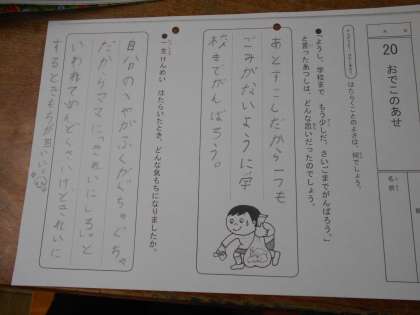 20 おでこのあせ
名前
はたらくことのよさは、何でしょう。
●「ようし、学校まで もう少しだ。さいごまでがんばろう。」
と言ったあつしは、どんな思いだったのでしょう。
あとすこしだから一つも
ごみがないように、学
校までがんばろう。
●一生けんめい はたらいたとき、どんな気もちになりましたか。
自分のへやがふくがぐちゃぐちゃ
だからママに「きれいにしろ。」と
いわれてめんどくさいけどきれいに
するときもちが思いい。